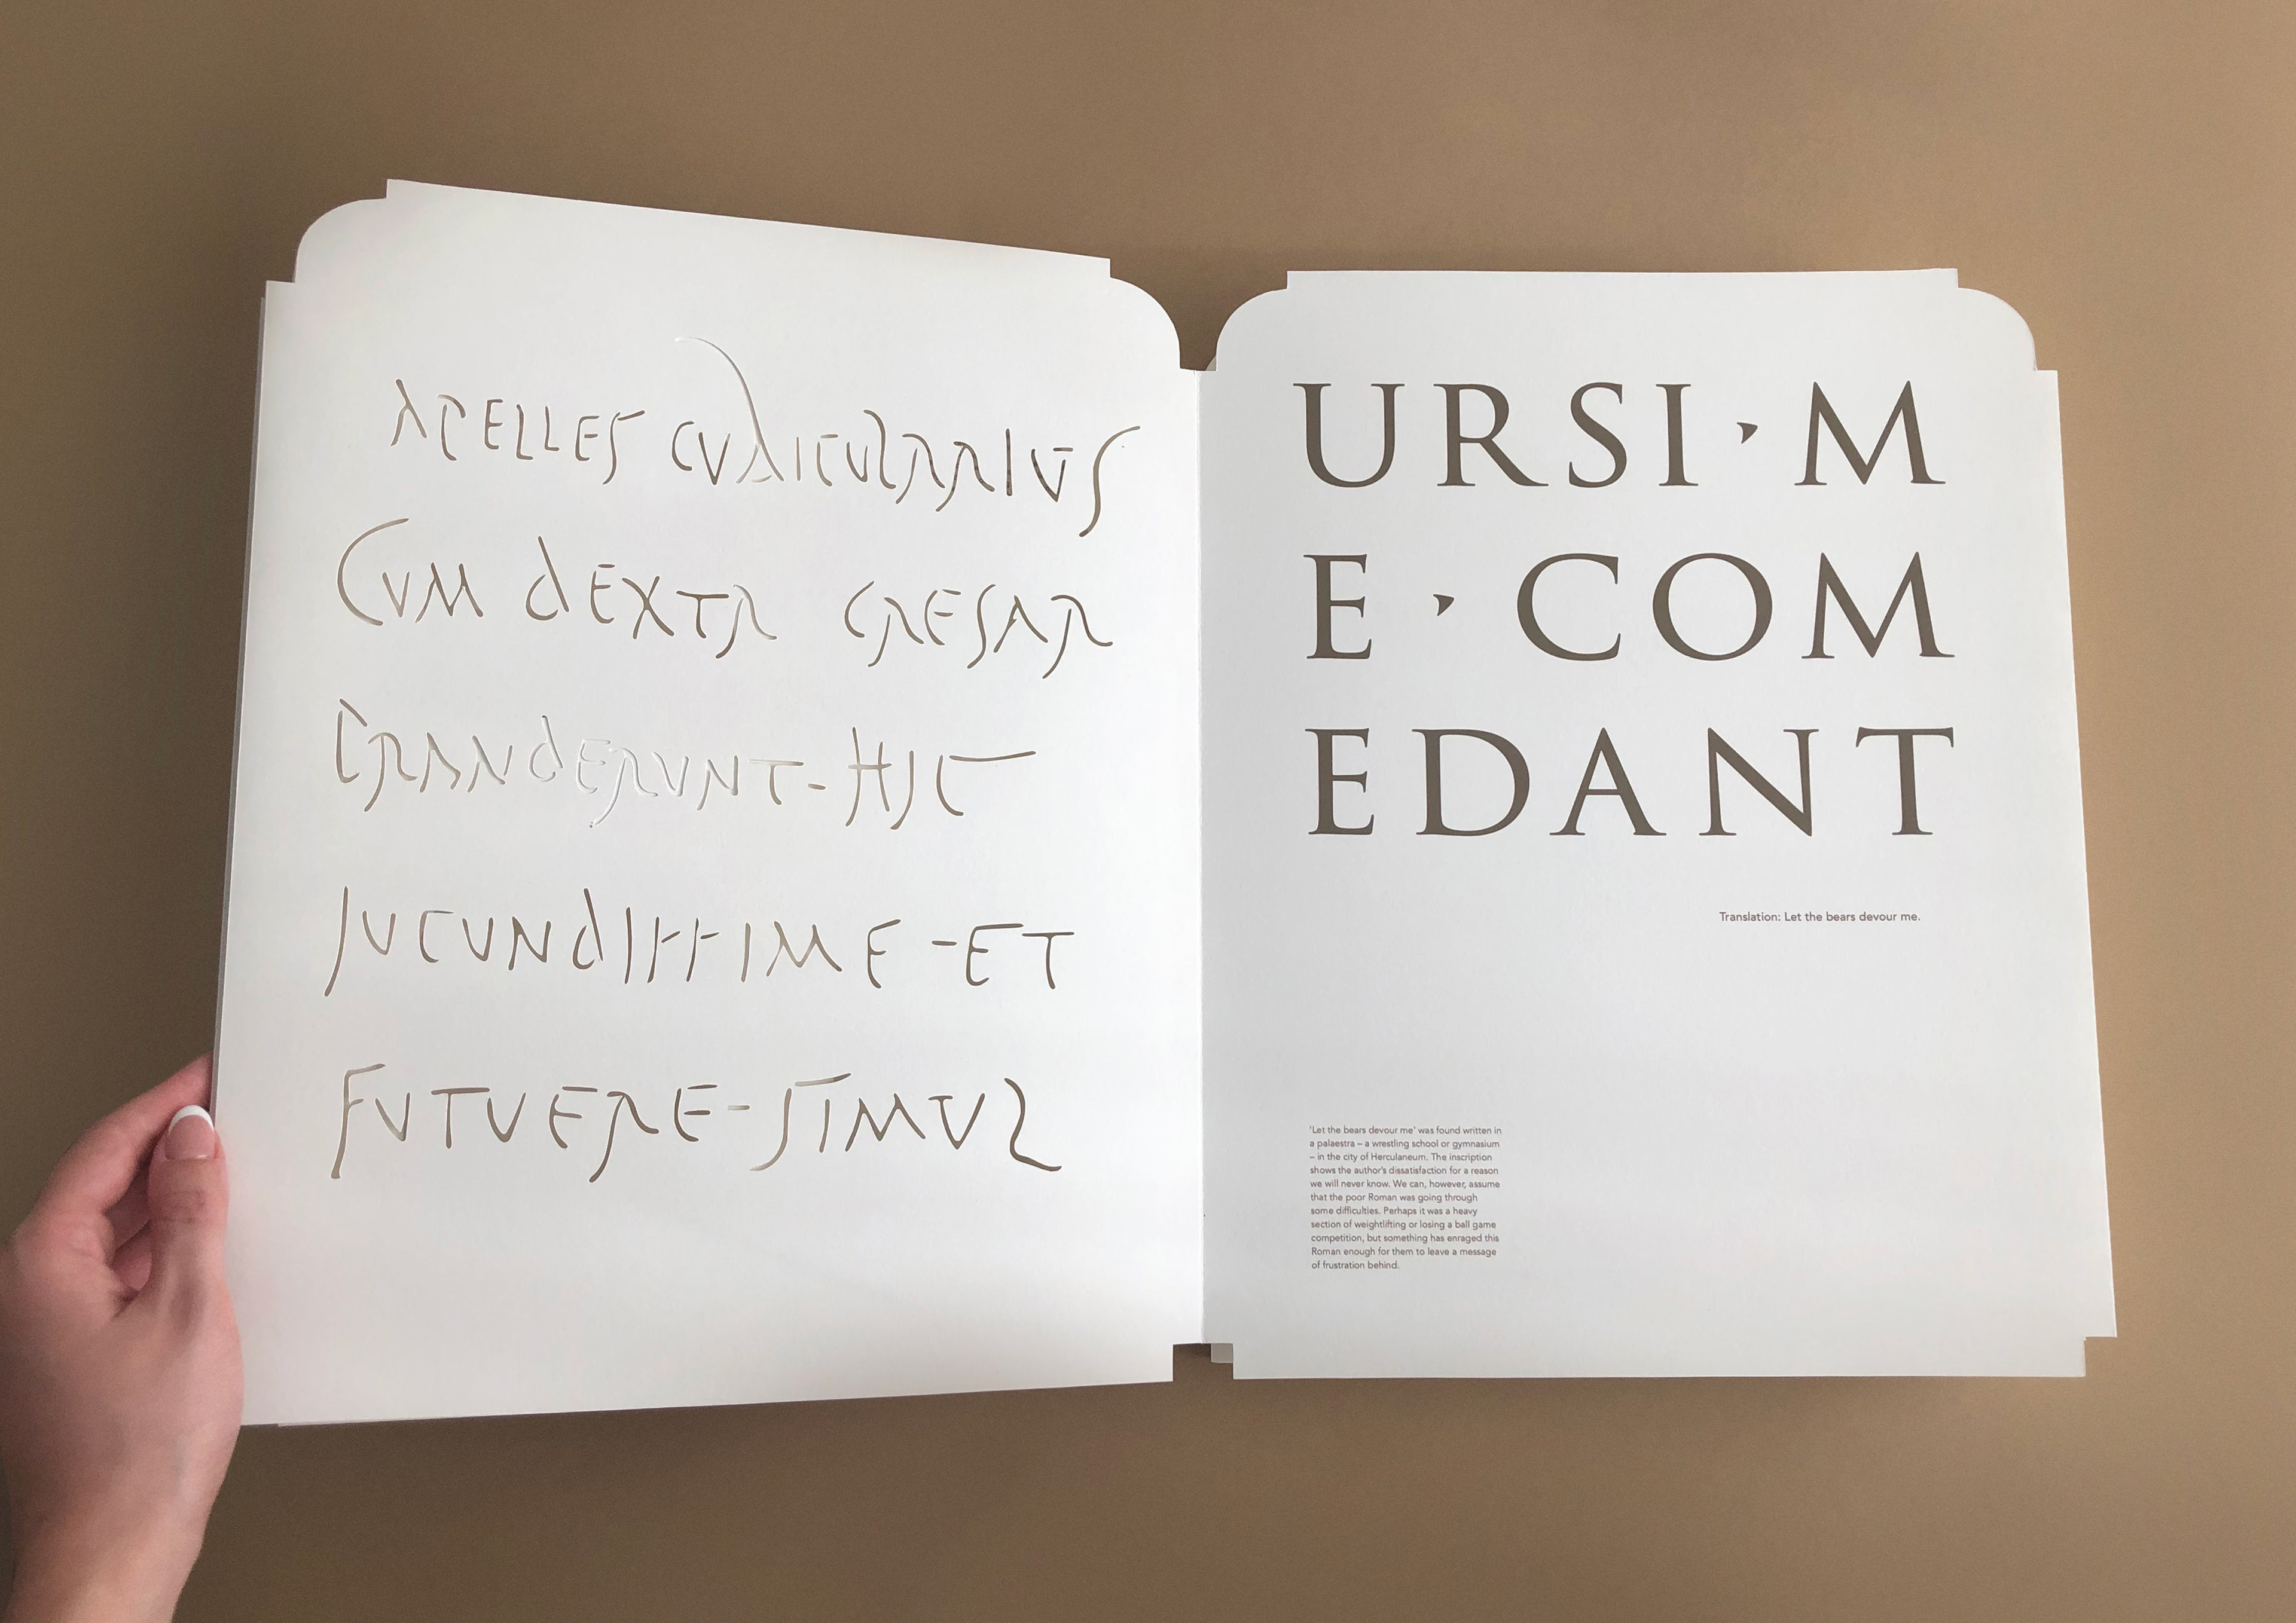 APELLES CVBICVLARIVS
CVM dEXTR CAESAR
PRANdERVNT-HIC
IVCVNdISSIME-ET
FVTVERE-SIMVL
URSI·M
E·COM
EDANT
Translation: Let the bears devour me.
'Let the bears devour me' was found written in
a palaestra – a wrestling school or gymnasium
– in the city of Herculaneum. The inscription
shows the author's dissatisfaction for a reason
we will never know. We can, however, assume
that the poor Roman was going through
some difficulties. Perhaps it was a heavy
section of weightlifting or losing a ball game
competition, but something has enraged this
Roman enough for them to leave a message
of frustration behind.